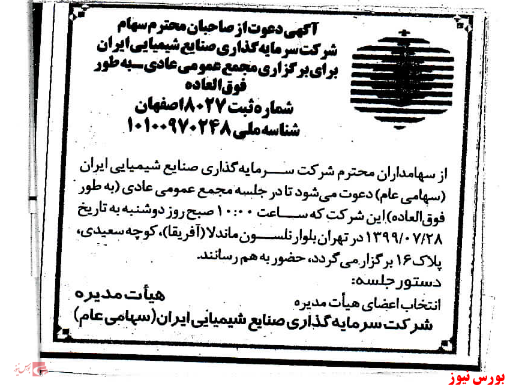 آگهی دعوت از صاحبان محترم سهام
شرکت سرمایه گذاری صنایع شیمیایی ایران
برای برگزاری مجمع عمومی عادی ــ به طور
فوق العاده
شماره ثبت ۱۸۰۲۷ اصفهان
شناسه ملی ۱۰۱۰۰۹۷۰۲۴۸
از سهامداران محترم شرکت سرمایه گذاری صنایع شیمیایی ایران
(سهامی عام) دعوت می‌شود تا در جلسه مجمع عمومی عادی (به طور
فوق العاده) این شرکت که ساعت ۱۰:۰۰ صبح روز دوشنبه به تاریخ
۱۳۹۹/۰۷/۲۸ در تهران بلوار نلسون ماندلا (آفریقا)، کوچه سعیدی،
پلاک ۱۶ برگزار می گردد، حضور به هم رسانند.
دستور جلسه:
انتخاب اعضای هیأت مدیره
هیأت مدیره
شرکت سرمایه گذاری صنایع شیمیایی ایران (سهامی عام)
بورس نیوز